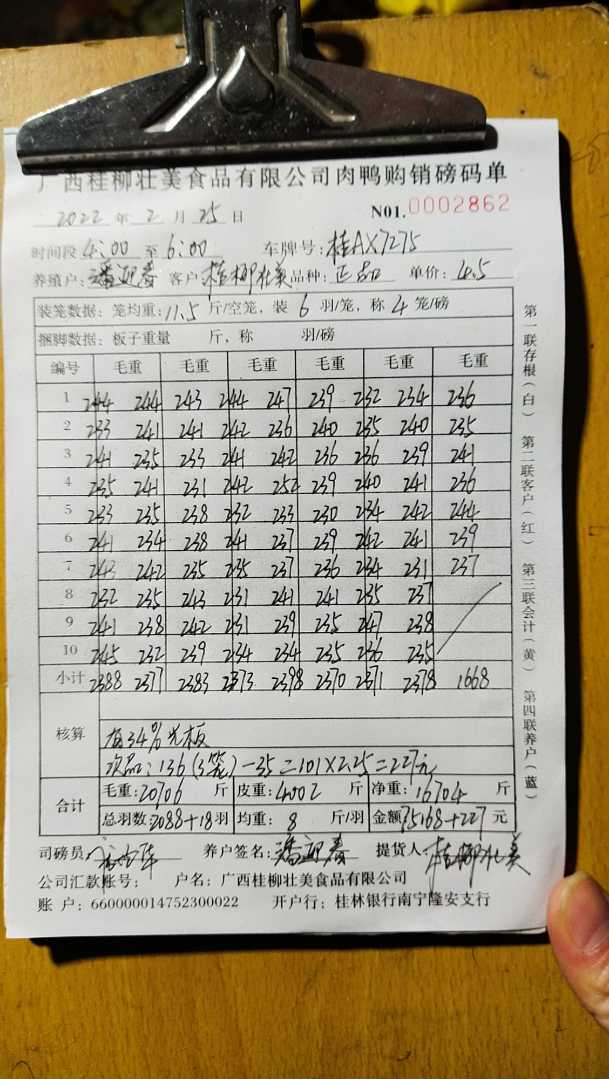 广西桂柳壮美食品有限公司肉鸭购销磅码单
2022 年 2 月 25 日 N01.0002862
时间段 4:00 至 6:00 车牌号:桂AX7275
养殖户:潘迎春 客户:桂柳壮美 品种:正品 单价:4.5
装笼数据:笼均重:11.5 斤/空笼,装 6 羽/笼,称 4 笼/磅
捆脚数据:板子重量 斤,称 羽/磅
编号 毛重 毛重 毛重 毛重 毛重
1 244 244 243 244 247 239 232 234 236
2 233 241 241 242 236 240 235 240 235
3 241 235 233 241 242 236 236 239 241
4 235 241 231 242 252 239 240 241 236
5 233 235 238 232 233 230 234 242 244
6 241 234 238 241 237 239 242 241 239
7 243 242 235 235 237 236 234 231 237
8 232 235 243 231 241 241 235 237
9 241 238 242 231 239 235 247 238
10 245 232 239 234 234 235 236 235
小计 2388 2377 2383 2373 2398 2370 2371 2378 1668
核算
有34%光板
次品:136(3笼)-35=101×2.25=227元
合计
毛重:20706 斤 皮重:4002 斤 净重:16704 斤
总羽数:2088+18羽 均重:8 斤/羽 金额75168+227 元
司磅员 养户签名:潘迎春 提货人:桂柳壮美
公司汇款账号: 户名:广西桂柳壮美食品有限公司
账 户:660000014752300022 开户行:桂林银行南宁隆安支行
第一联存根(白) 第二联客户(红) 第三联会计(黄) 第四联养户(蓝)